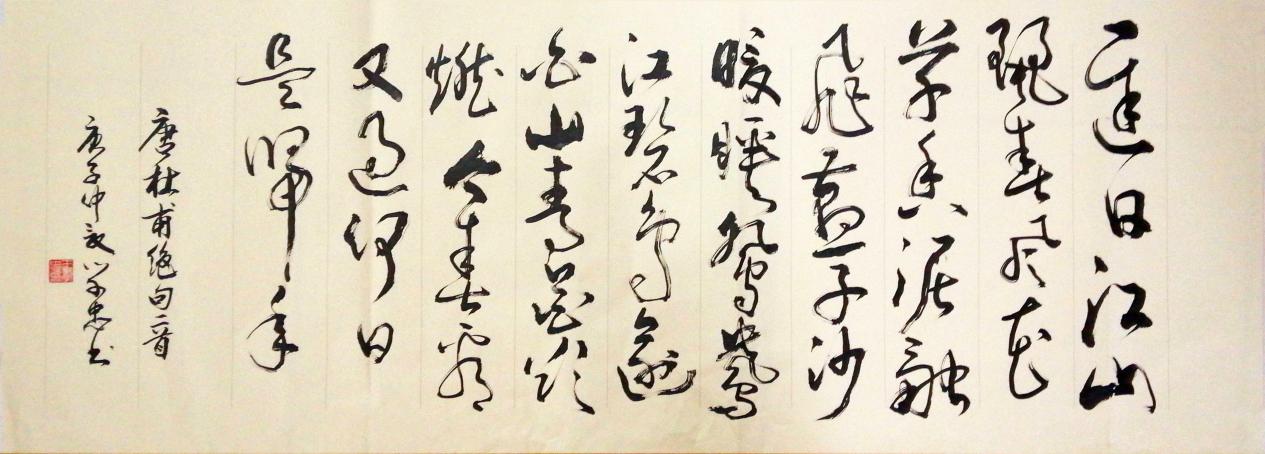 遲日江山
麗春風花
草香泥融
飛燕子沙
暖睡鴛鴦
江碧鳥逾
白山青花欲
燃今春看
又過何日
是歸年
唐杜甫絶句二首
庚子仲夏學忠书